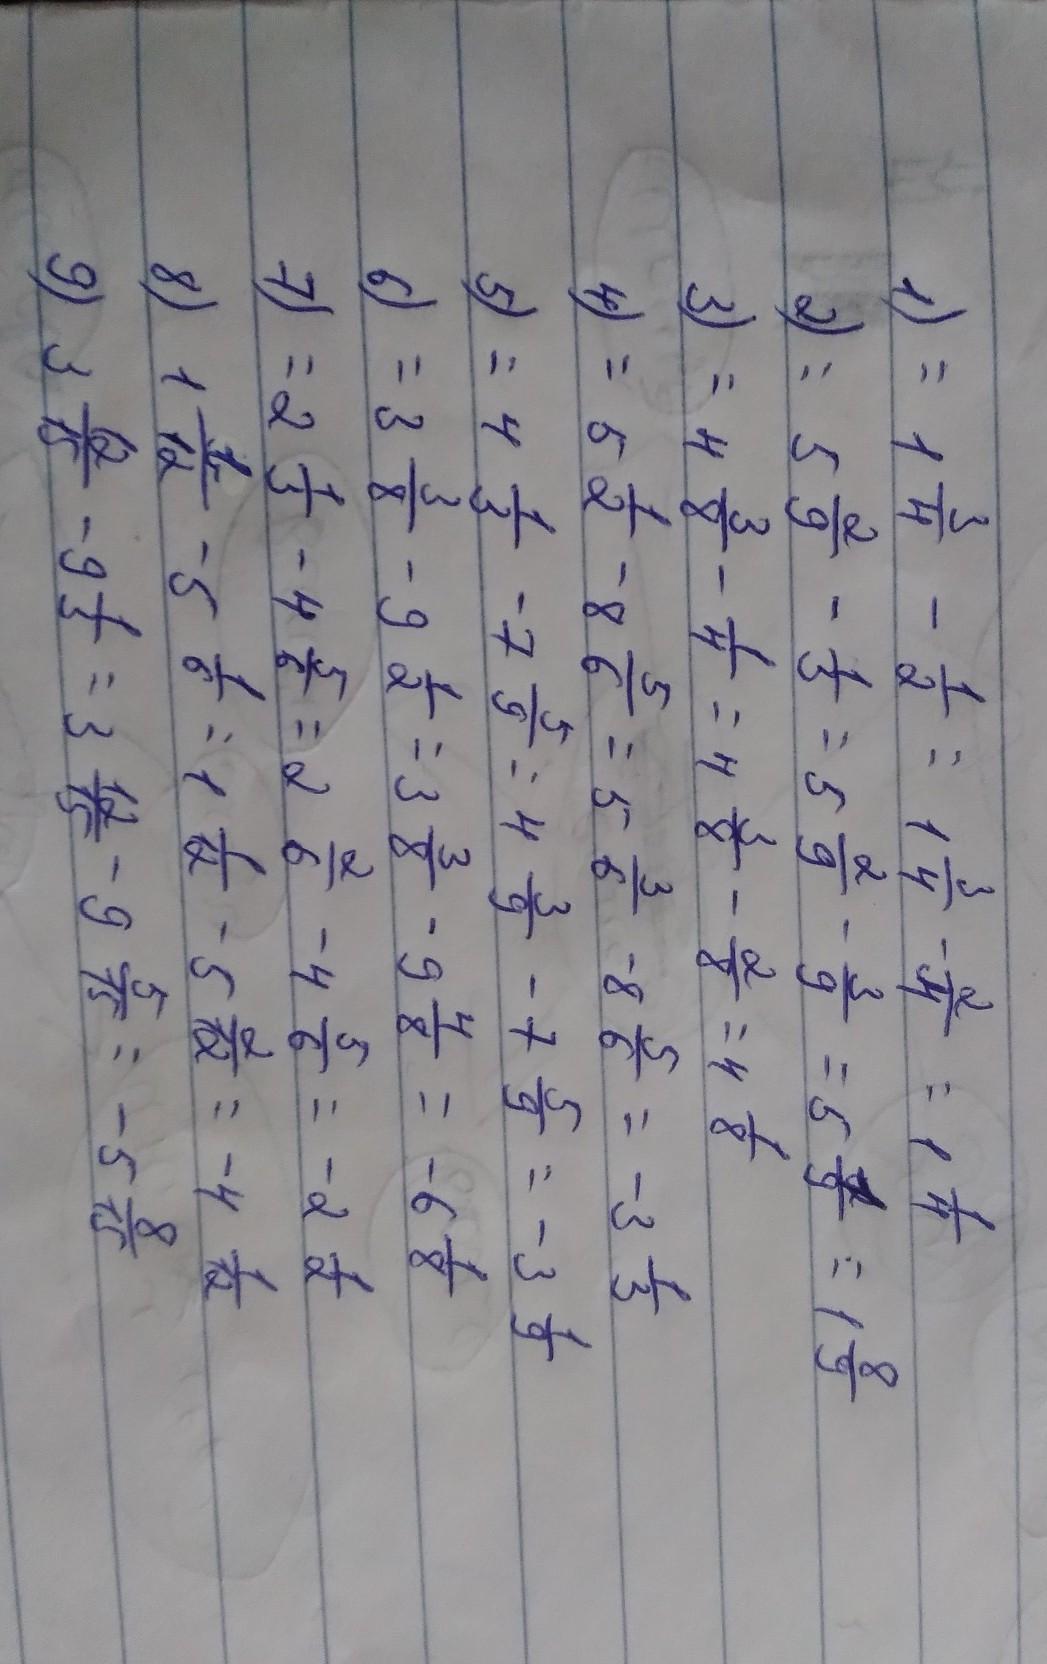 1) = 1 3/4 - 1/2 = 1 3/4 - 2/4 = 1 1/4
2) = 5 2/9 - 1/3 = 5 2/9 - 3/9 = 5 1/9 = 1 8/9
3) = 4 3/8 - 1/4 = 4 3/8 - 2/8 = 4 1/8
4) = 5 1/2 - 8 5/6 = 5 3/6 - 8 5/6 = -3 1/3
5) = 4 1/3 - 7 5/9 = 4 3/9 - 7 5/9 = -3 1/9
6) = 3 3/8 - 9 1/2 = 3 3/8 - 9 4/8 = -6 1/8
7) = 2 1/3 - 4 5/6 = 2 2/6 - 4 5/6 = -2 1/2
8) 1 1/12 - 5 1/6 = 1 1/12 - 5 2/12 = -4 1/12
9) 3 12/15 - 9 1/3 = 3 12/15 - 9 5/15 = -5 8/15